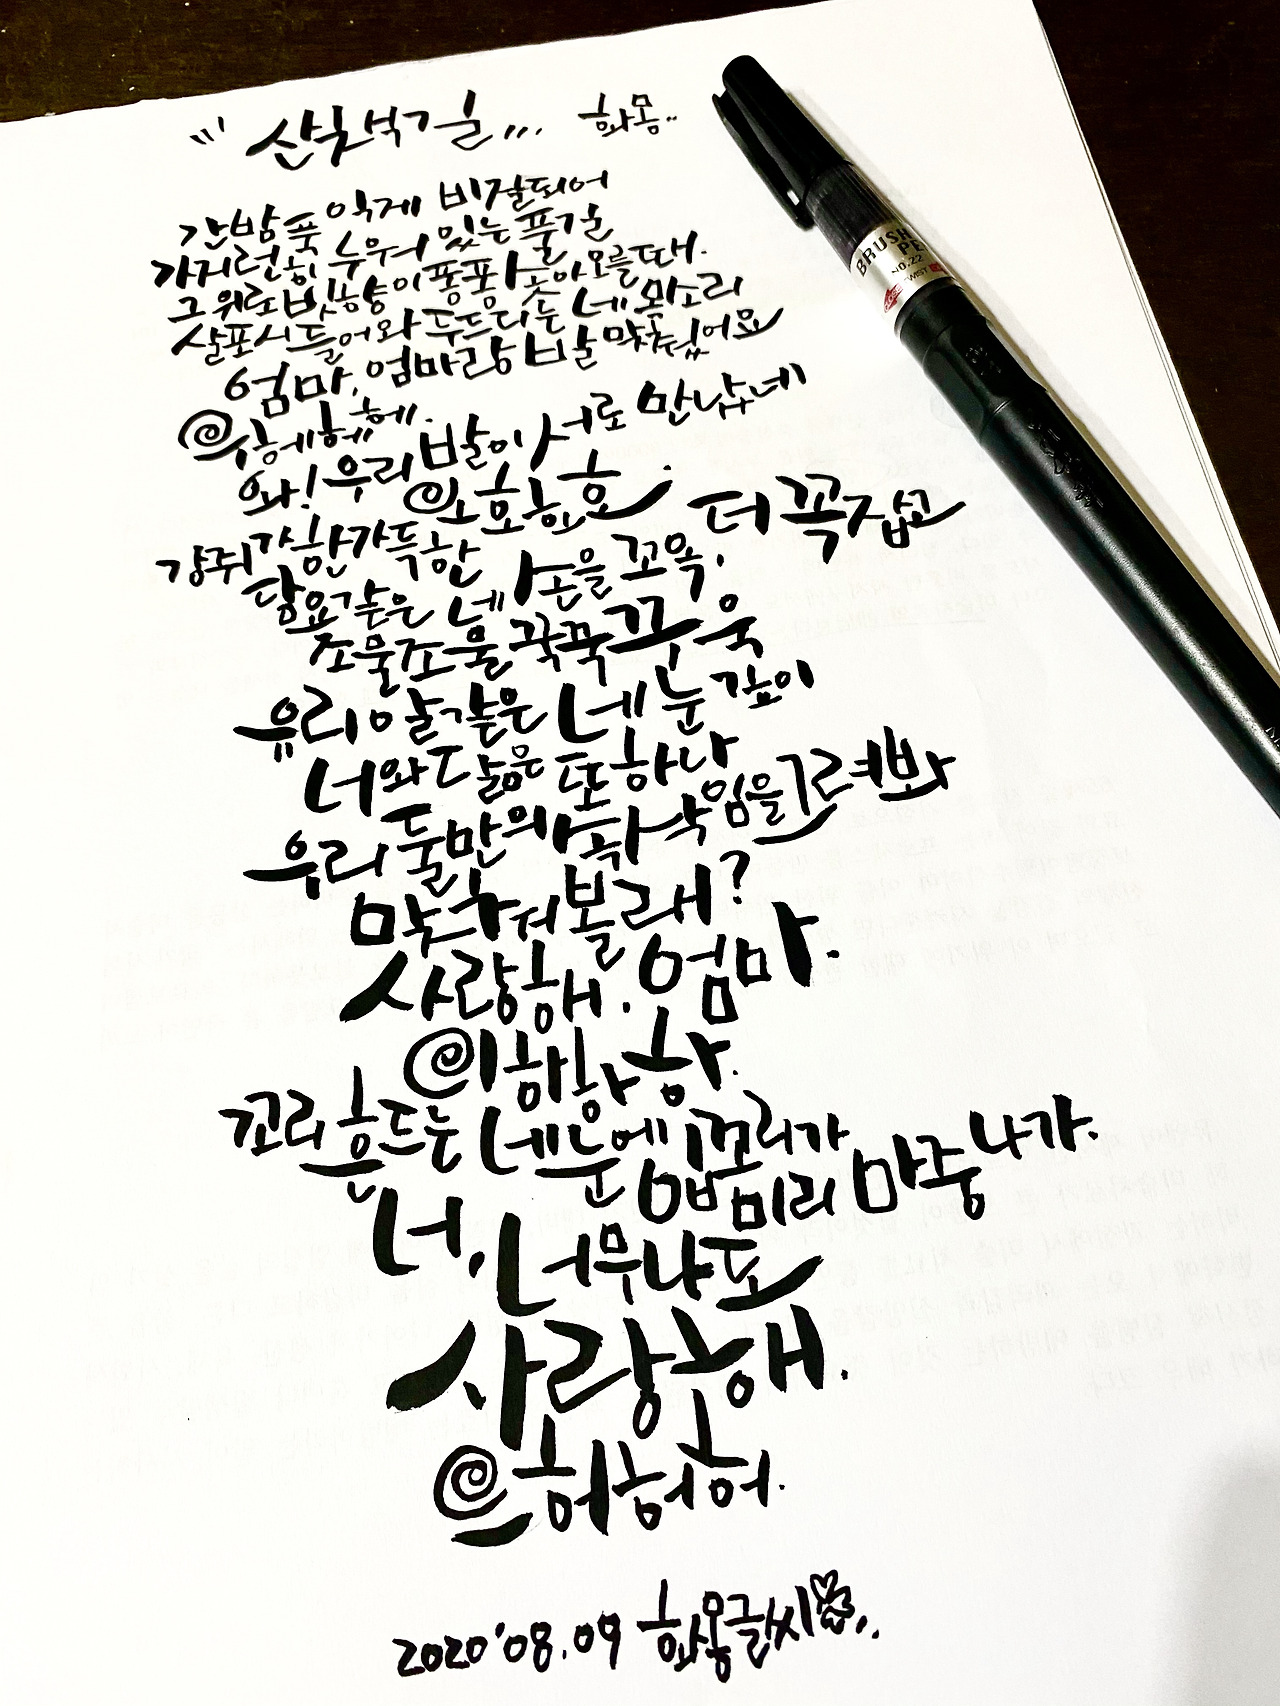 산책길... 화몽..
간밤 푹 익게 비질되어
가지런히 누워 있는 풀길
그 위로 빗방이 퐁퐁 솟아오를때.
살포시 들어와 두드리는 네 목소리
엄마, 엄마랑 발 맞췄어요
헤헤헤.
와! 우리 발이 서로 만났네
오호호호
강쥐 가 한가득한
담요같은 네 손을 꼬옥, 더 꼭 잡고
조물조물 꾹꾹 꾸우욱
유리알같은 네 눈 깊이
너와 닮은 또 하나
우리 둘만의 속삭임을 그려봐
맞춰볼래?
사랑해. 엄마.
이 하하하.
꼬리 흔드는 네 눈에 입꼬리가
미리 마중 나가.
너, 너무나도
사랑해.
으허허허.
2020'08.09 화몽글씨
BRUSH PEN
NO.22